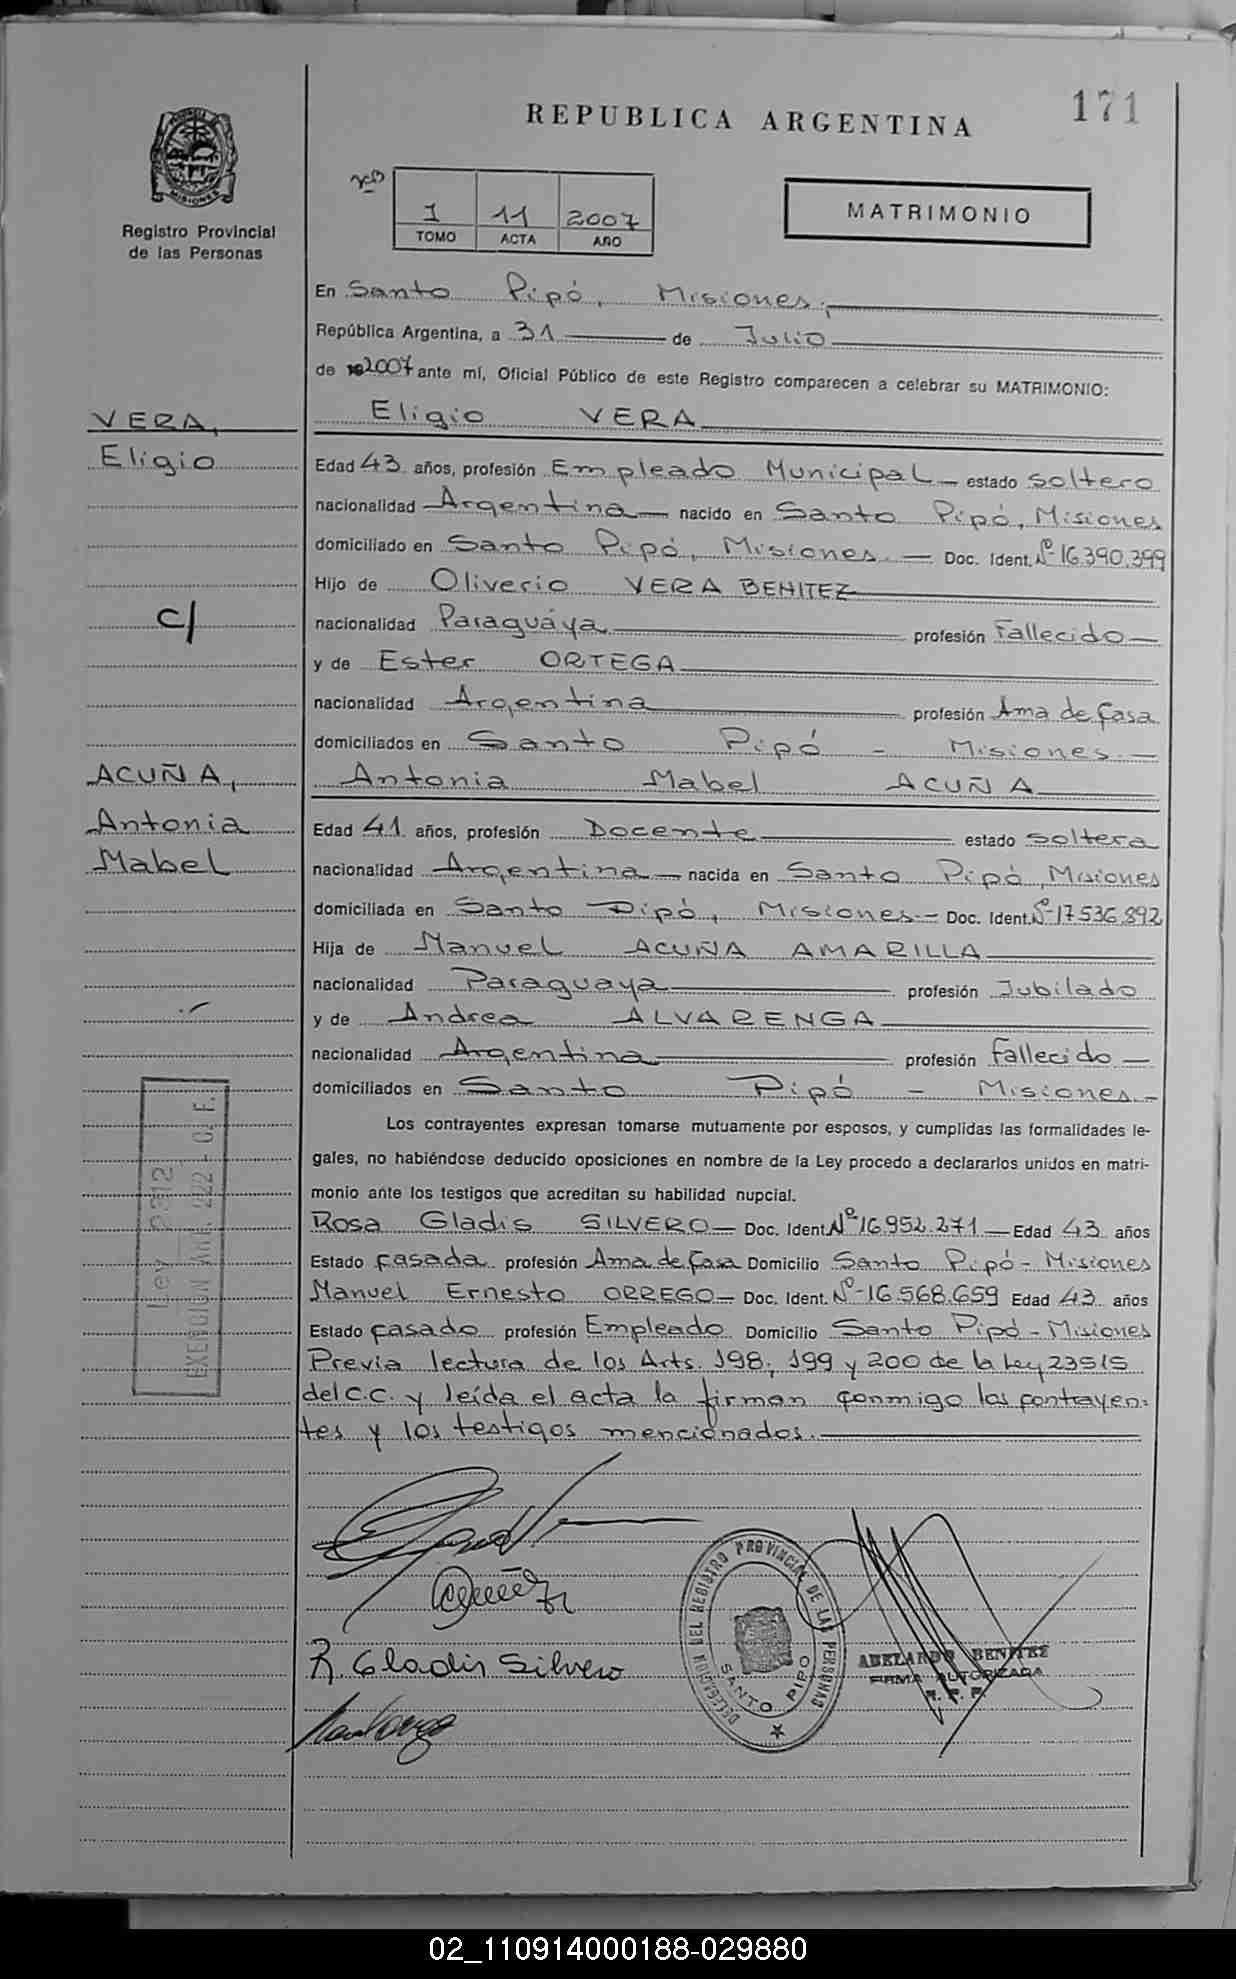 171
REPUBLICA ARGENTINA
MISIONES
Registro Provincial
de las Personas
Nº
1 11 2007
TOMO ACTA AÑO
MATRIMONIO
En Santo Pipó, Misiones.
República Argentina, a 31 de Julio
de 2007 ante mí, Oficial Público de este Registro comparecen a celebrar su MATRIMONIO:
VERA, Eligio VERA
Eligio Edad 43 años, profesión Empleado Municipal estado soltero
nacionalidad Argentina nacido en Santo Pipó, Misiones
domiciliado en Santo Pipó, Misiones. Doc. Ident. Nº 16.390.399
Hijo de Oliverio VERA BENITEZ
c/ nacionalidad Paraguáya profesión Fallecido
y de Ester ORTEGA
nacionalidad Argentina profesión Ama de Casa
domiciliados en Santo Pipó - Misiones.
ACUÑA, Antonia Mabel ACUÑA
Antonia Edad 41 años, profesión Docente estado soltera
Mabel nacionalidad Argentina nacida en Santo Pipó, Misiones
domiciliada en Santo Pipó, Misiones Doc. Ident. Nº 17.536.892
Hija de Manuel ACUÑA AMARILLA
nacionalidad Paraguaya profesión Jubilado
y de Andrea ALVARENGA
nacionalidad Argentina profesión Fallecido
domiciliados en Santo Pipó - Misiones.
Los contrayentes expresan tomarse mutuamente por esposos, y cumplidas las formalidades le-
gales, no habiéndose deducido oposiciones en nombre de la Ley procedo a declararlos unidos en matri-
monio ante los testigos que acreditan su habilidad nupcial.
Rosa Gladis SILVERO Doc. Ident. Nº 16.952.271 Edad 43 años
Estado Casada profesión Ama de Casa Domicilio Santo Pipó - Misiones
Manuel Ernesto ORREGO Doc. Ident. Nº 16.568.659 Edad 43 años
Estado Casado profesión Empleado Domicilio Santo Pipó - Misiones
Previa lectura de los Arts. 198, 199 y 200 de la Ley 23515
del C.C. y leída el acta la firman conmigo los contrayen-
tes y los testigos mencionados.
Ley 2312
EXENCION Art. 222 - C. F.
R. Gladis Silvero
DELEGACION DEL REGISTRO PROVINCIAL DE LAS PERSONAS
SANTO PIPO
ABELARDO BENITEZ
FIRMA AUTORIZADA
R. P. P.
02_110914000188-029880